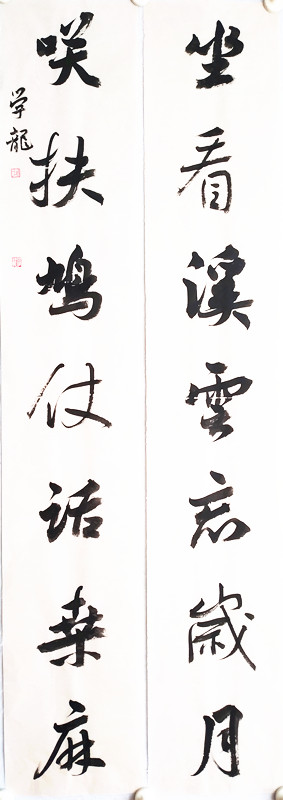 坐看溪雲忘歲月
咲扶鳩仗話桒麻
学龍